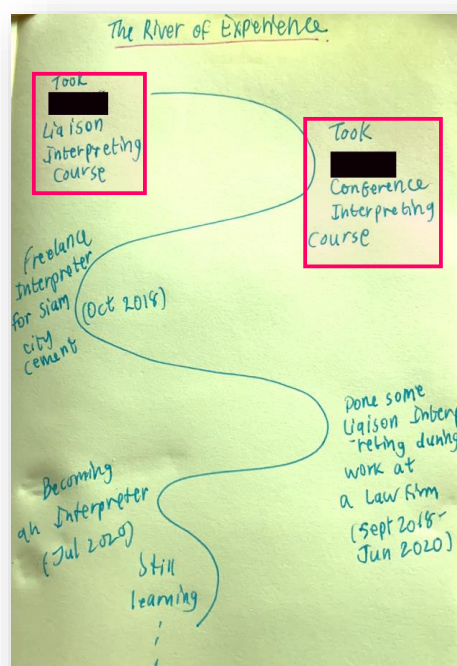 The River of Experience
Took
Liaison
Interpreting
Course
Took
Conference
Interpreting
Course
Freelance
Interpreter
for Siam
city
cement
(Oct 2018)
Done some
Liaison Interp
-reting during
work at
a Law Firm
(Sept 2018-
Jun 2020)
Becoming
an Interpreter
(Jul 2020)
Still
learning